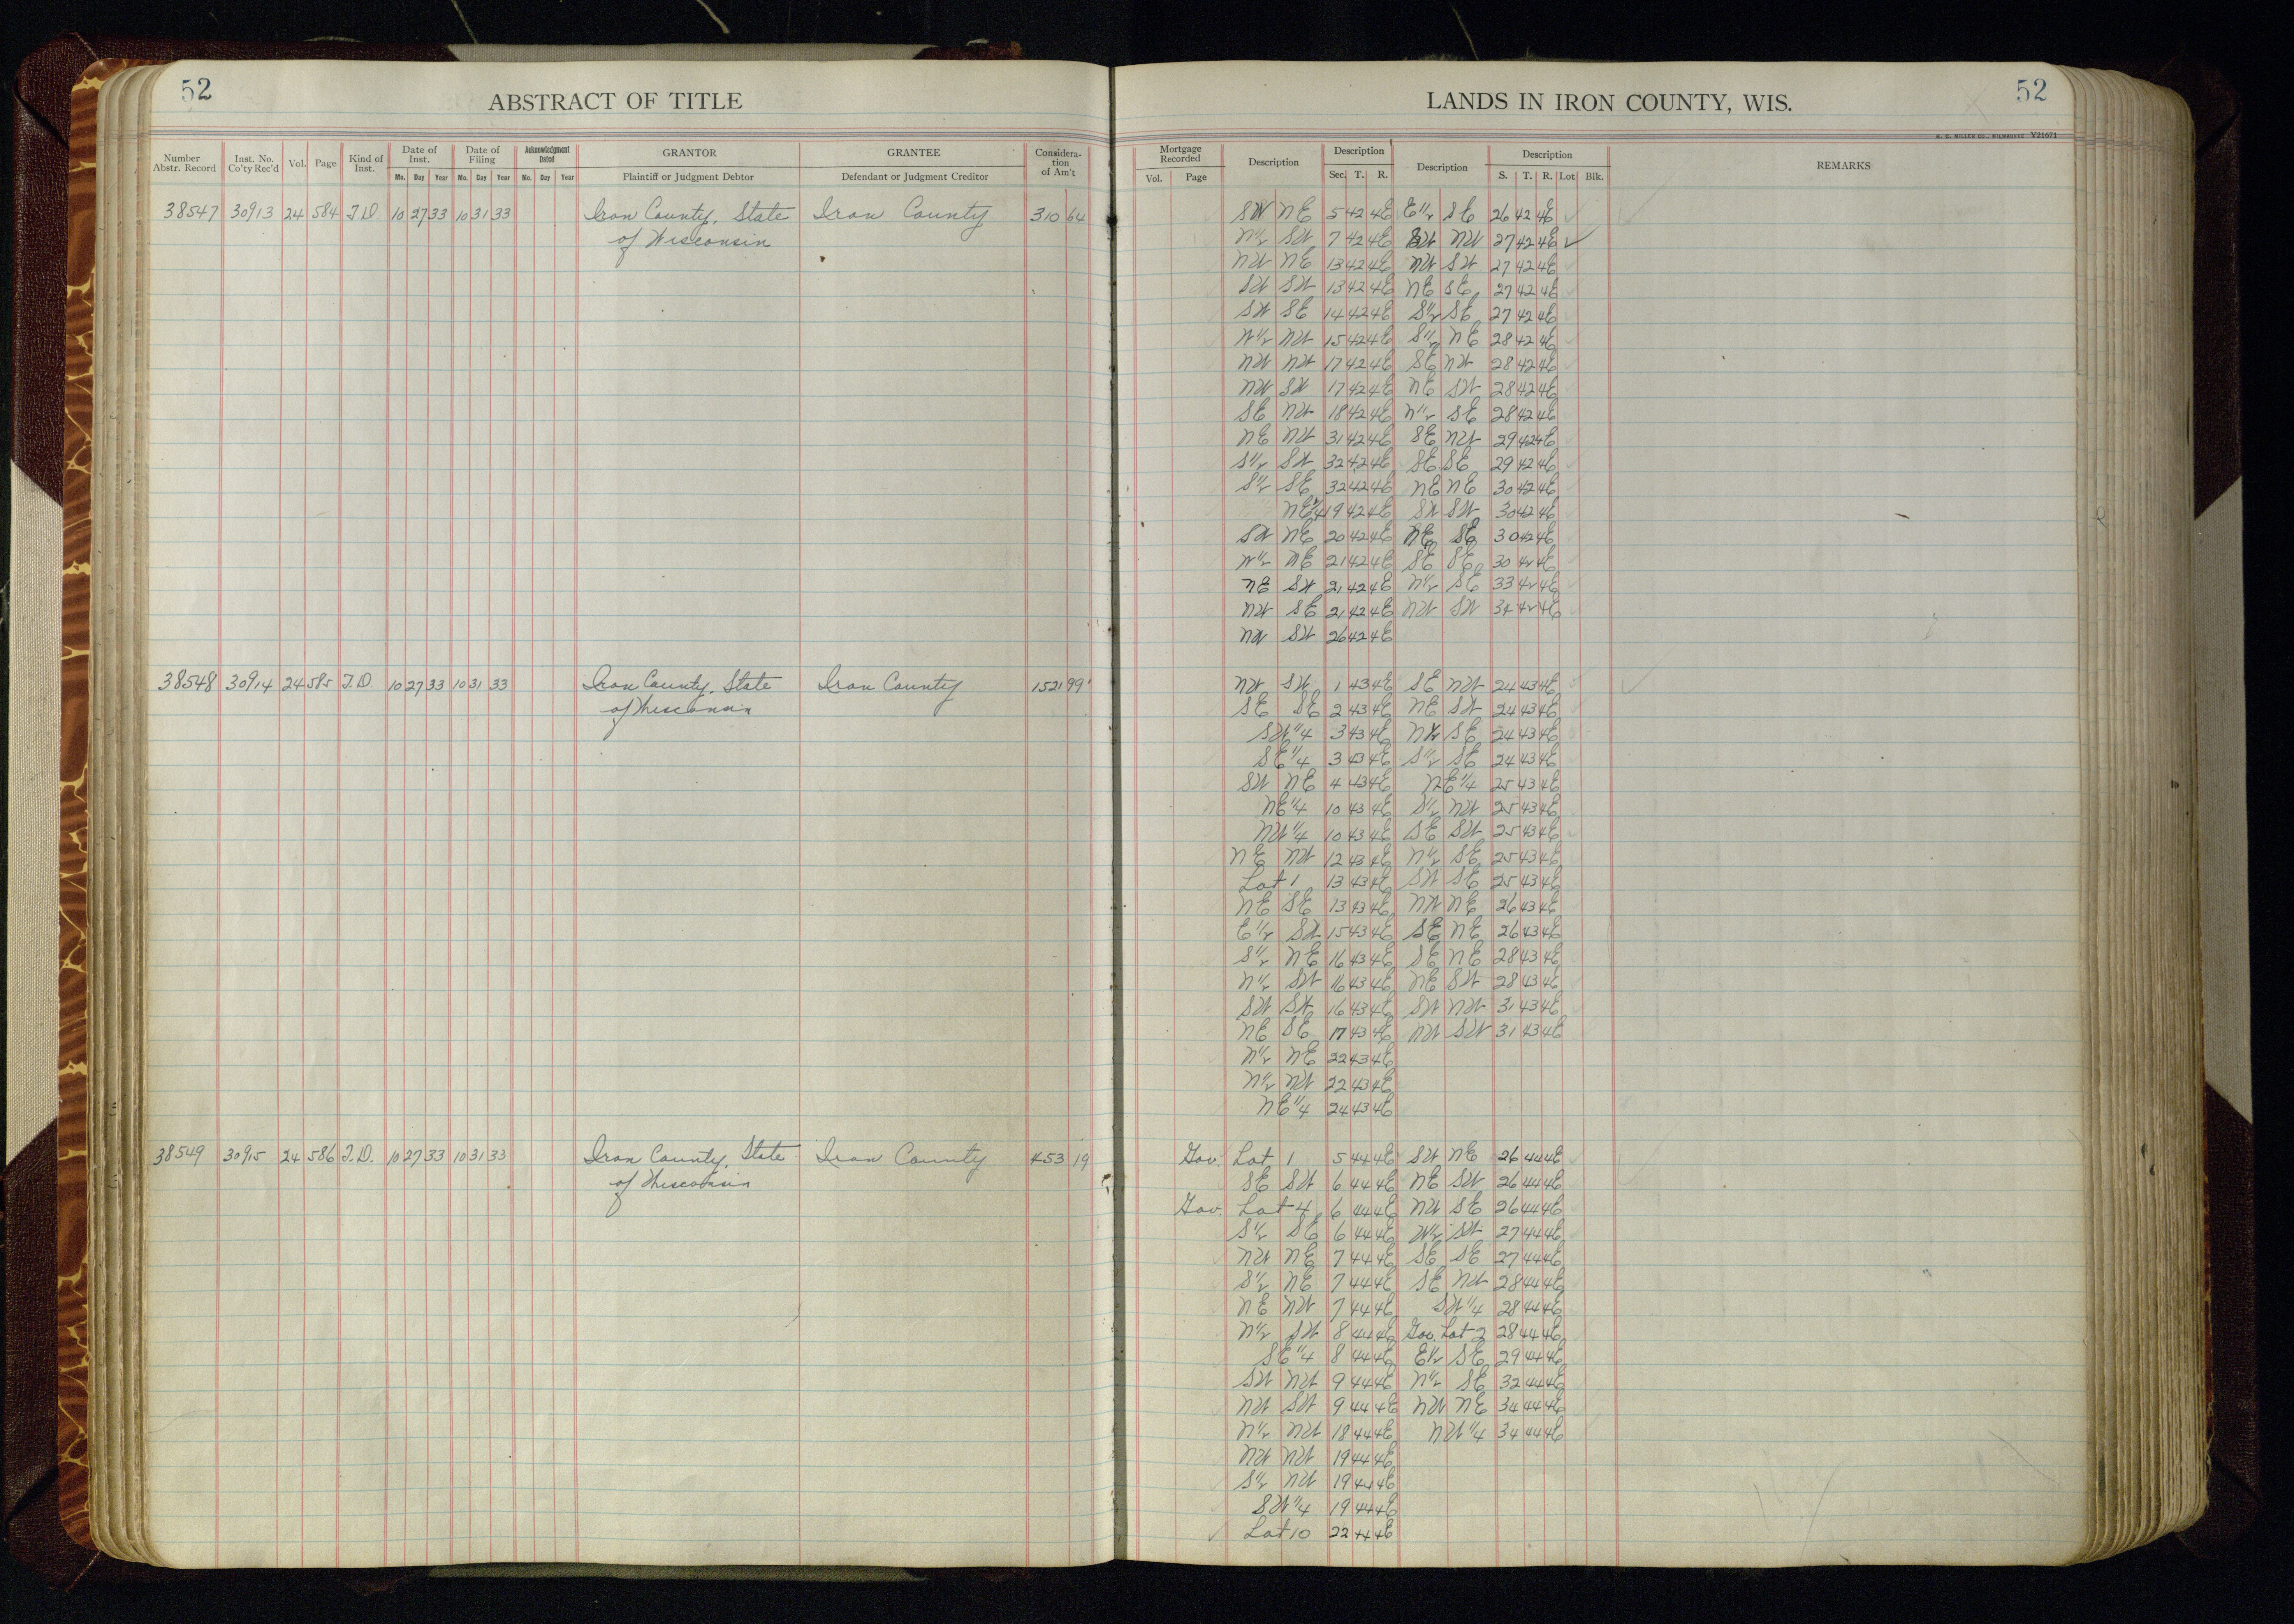 52
ABSTRACT OF TITLE
LANDS IN IRON COUNTY, WIS.
52
H. C. MILLER CO., MILWAUKEE Y21671
Number Abstr. Record | Inst. No. Co'ty Rec'd | Vol. | Page | Kind of Inst. | Date of Inst. Mo. Day Year | Date of Filing Mo. Day Year | Acknowledgment Dated Mo. Day Year | GRANTOR Plaintiff or Judgment Debtor | GRANTEE Defendant or Judgment Creditor | Consideration of Am't | Mortgage Recorded Vol. Page | Description | Description Sec. T. R. | Description | Description S. T. R. Lot Blk. | REMARKS
38547 30913 24 584 T.D 10 27 33 10 31 33 Iron County, State Iron County 310 64 SW NE 5 42 4E E½ SE 26 42 4E
of Wisconsin N½ SW 7 42 4E SW NW 27 42 4E ✓
NW NE 13 42 4E NW SW 27 42 4E
SW SW 13 42 4E NE SE 27 42 4E
SW SE 14 42 4E S½ SE 27 42 4E
W½ NW 15 42 4E S½ NE 28 42 4E
NW NW 17 42 4E SE NW 28 42 4E
NW SW 17 42 4E NE SW 28 42 4E
SE NW 18 42 4E N½ SE 28 42 4E
NE NW 31 42 4E SE NW 29 42 4E
S½ SW 32 42 4E SE SE 29 42 4E
S½ SE 32 42 4E NE NE 30 42 4E
NE¼ 19 42 4E SW SW 30 42 4E
SW NE 20 42 4E NE SE 30 42 4E
W½ NE 21 42 4E SE SE 30 42 4E
NE SW 21 42 4E N½ SE 33 42 4E
NW SE 21 42 4E NW SW 34 42 4E
NW SW 26 42 4E
38548 30914 24 585 T.D. 10 27 33 10 31 33 Iron County, State Iron County 1521 99 NW SW 1 43 4E SE NW 24 43 4E
of Wisconsin SE SE 2 43 4E NE SW 24 43 4E
SW¼ 3 43 4E NW SE 24 43 4E
SE¼ 3 43 4E S½ SE 24 43 4E
SW NE 4 43 4E NE¼ 25 43 4E
NE¼ 10 43 4E S½ NW 25 43 4E
NW¼ 10 43 4E SE SW 25 43 4E
NE NW 12 43 4E N½ SE 25 43 4E
Lot 1 13 43 4E SW SE 25 43 4E
NE SE 13 43 4E NW NE 26 43 4E
E½ SW 15 43 4E SE NE 26 43 4E
S½ NE 16 43 4E SE NE 28 43 4E
N½ SW 16 43 4E NE SW 28 43 4E
SW SW 16 43 4E SW NW 31 43 4E
NE SE 17 43 4E NW SW 31 43 4E
N½ NE 22 43 4E
N½ NW 22 43 4E
NE¼ 24 43 4E
38549 30915 24 586 T.D. 10 27 33 10 31 33 Iron County, State Iron County 453 19 Gov. Lot 1 5 44 4E SW NE 26 44 4E
of Wisconsin SE SW 6 44 4E NE SW 26 44 4E
Gov. Lot 4 6 44 4E NW SE 26 44 4E
S½ SE 6 44 4E W½ SW 27 44 4E
NW NE 7 44 4E SE SE 27 44 4E
S½ NE 7 44 4E SE NW 28 44 4E
NE NW 7 44 4E SW¼ 28 44 4E
N½ SW 8 44 4E Gov. Lot 2 28 44 4E
SE¼ 8 44 4E E½ SE 29 44 4E
SW NW 9 44 4E N½ SE 32 44 4E
NW SW 9 44 4E NW NE 34 44 4E
N½ NW 18 44 4E NW¼ 34 44 4E
NW NW 19 44 4E
S½ NW 19 44 4E
SW¼ 19 44 4E
Lot 10 22 44 4E